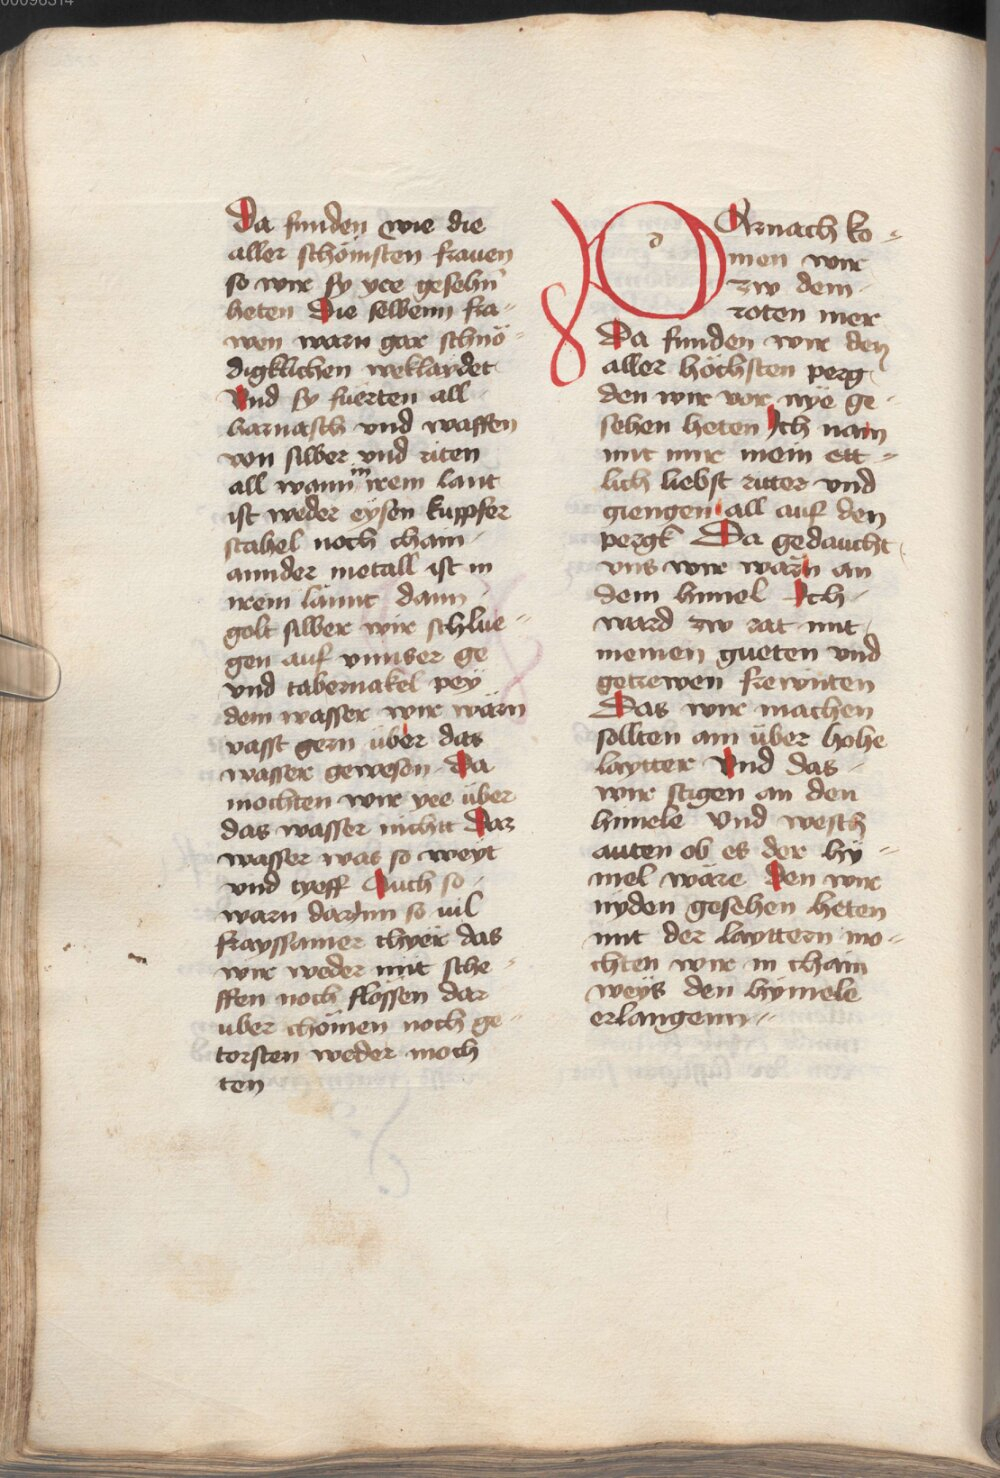 00096314
Da funden wie die
aller schönisten frauen
so wir sy yee gesehn
heten Die selbenn fra-
wen warn gar schnö-
digklichen weklaydet
Und sy fuerten all
harnasch vnd waffen
von silber vnd riten
all wann in irem lant
ist weder eysen kuppfer
stahel noch chain
annder metall ist in
irem lannt dann
golt silber wir schlue-
gen auf vnnser ge
vnd tabernakel pey
dem wasser wir wärn
vasst gern über das
wasser gewesen Da
mochten wir yee über
das wasser nichtt Daz
wasser was so weyt
vnd tyeff Auch so
warn darjnn so uil
frayssamer thyer das
wir weder mit sche-
ffen noch flössen dar
uber chömen noch ge-
torsten weder moch
ten
d
Arnach ko-
men wir
zw dem
roten mer
Da funden wir den
aller höchsten perg
den wir vor nye ge-
sehen heten Ich nam
mit mir mein ett-
lich liebst ritter vnd
giengen all auf den
pergk Da gedaucht
vns wir warn an
dem himel Ich
ward zw rat mit
meinen gueten vnd
getrewen frewnten
Das wir machen
sollten ain über hohe
laytter Und das
wir stigen an den
himele Vnd wesch
auten ob es der hy-
mel wäre Den wir
nyden gesehen heten
mit der layttern mo-
chten wir in chain
weys den hymele
erlangenn